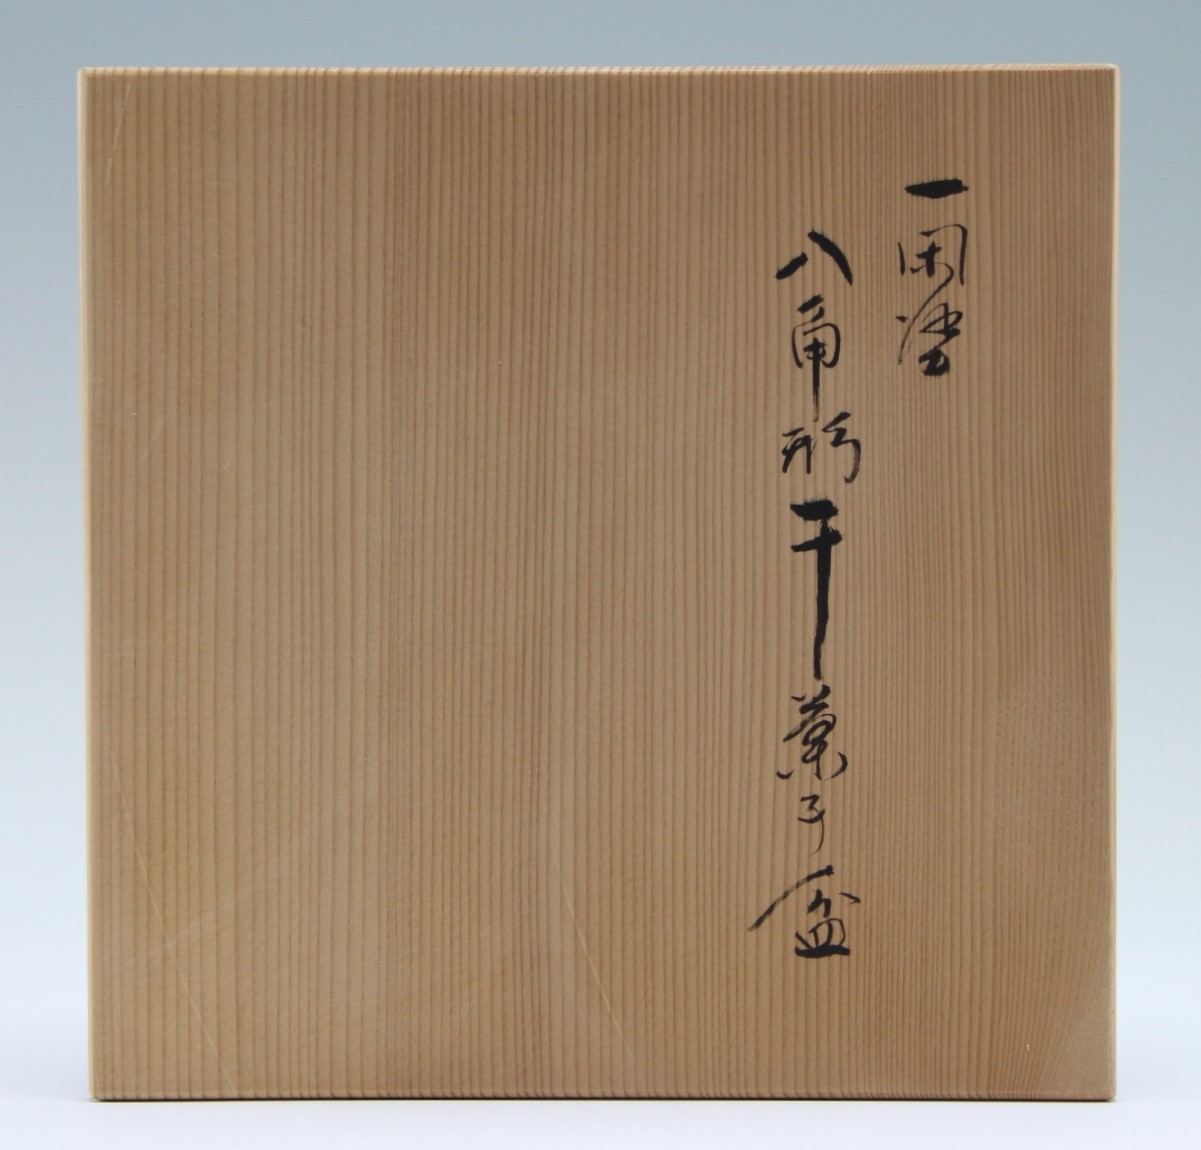 一閑塗
八角形干菓子盆